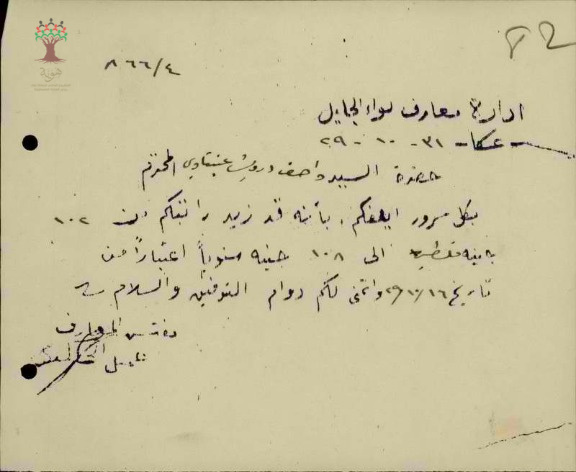 ٨٦٦/٤
ادارة معارف لواء الجليل
عكا - ٣١ - ١٠ - ٢٩
حضرة السيد واصف درويش عبتاوي المحترم
بكل سرور ابلغكم بأنه قد زيد راتبكم من ١٠٢
جنيه الى ١٠٨ جنيه سنوياً اعتباراً من
تاريخ واتمنى لكم دوام التوفيق والسلام
مفتش المعارف